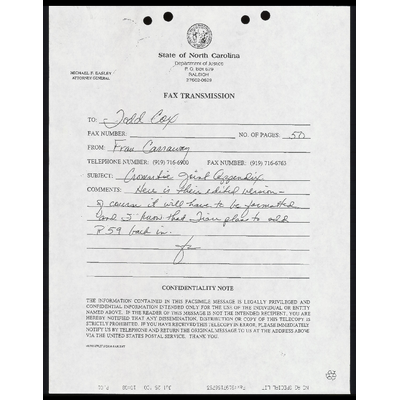 State of North Carolina
Department of Justice
P. O. BOX 629
RALEIGH
27602-0629
MICHAEL F. EASLEY
ATTORNEY GENERAL
FAX TRANSMISSION
TO: Todd Cox
FAX NUMBER: NO. OF PAGES: 50
FROM: Fran Carraway
TELEPHONE NUMBER: (919) 716-6900 FAX NUMBER: (919) 716-6763
SUBJECT: Cromartie Joint Appendix
COMMENTS: Here is their edited version -
of course it will have to be formatted
and I know that Tiare plans to add
P 59 back in.
CONFIDENTIALITY NOTE
THE INFORMATION CONTAINED IN THIS FACSIMILE MESSAGE IS LEGALLY PRIVILEGED AND
CONFIDENTIAL INFORMATION INTENDED ONLY FOR THE USE OF THE INDIVIDUAL OR ENTITY
NAMED ABOVE. IF THE READER OF THIS MESSAGE IS NOT THE INTENDED RECIPIENT, YOU ARE
HEREBY NOTIFIED THAT ANY DISSEMINATION, DISTRIBUTION OR COPY OF THIS TELECOPY IS
STRICTLY PROHIBITED. IF YOU HAVE RECEIVED THIS TELECOPY IN ERROR, PLEASE IMMEDIATELY
NOTIFY US BY TELEPHONE AND RETURN THE ORIGINAL MESSAGE TO US AT THE ADDRESS ABOVE
VIA THE UNITED STATES POSTAL SERVICE. THANK YOU.